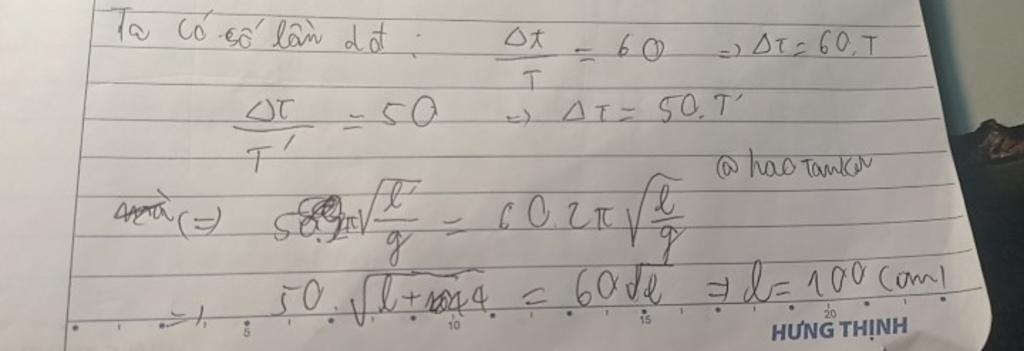 Ta có số lần dđ : Δt/T = 60 => Δt = 60.T
Δt/T' = 50 => Δt = 50.T'
@hao
(=) 50.2π√(l'/g) = 60.2π√(l/g)
=> 50.√(l+44) = 60√l => l = 100 (cm)
5 10 15 20
HƯNG THỊNH